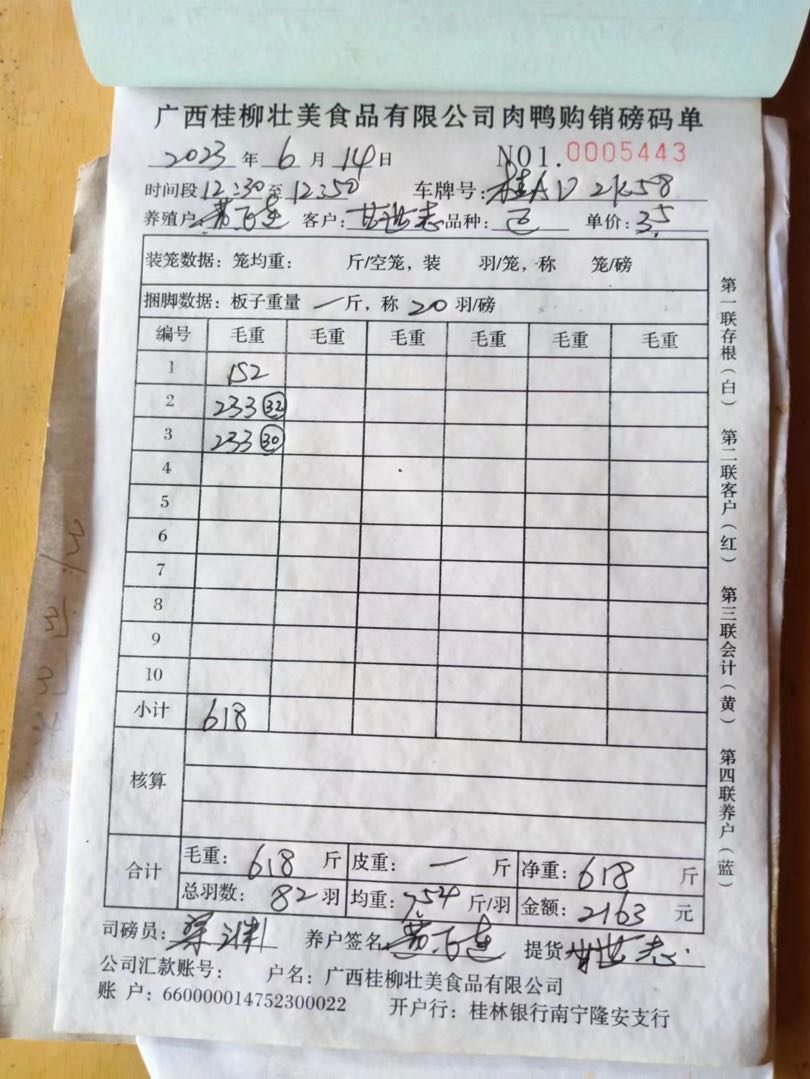 广西桂柳壮美食品有限公司肉鸭购销磅码单
2023 年 6 月 14 日 NO1.0005443
时间段 12:30 至 12:50 车牌号: 桂A D 2K58
养殖户: 客户: 甘世志 品种: 单价: 3.5
装笼数据: 笼均重: 斤/空笼, 装 羽/笼, 称 笼/磅
捆脚数据: 板子重量 一 斤, 称 20 羽/磅
编号 毛重 毛重 毛重 毛重 毛重 毛重
1 152
2 233 32
3 233 30
4
5
6
7
8
9
10
小计 618
核算
合计 毛重: 618 斤 皮重: 一 斤 净重: 618 斤
总羽数: 82 羽 均重: 7.54 斤/羽 金额: 2163 元
司磅员: 养户签名 提货 甘世志
公司汇款账号: 户名: 广西桂柳壮美食品有限公司
账 户: 660000014752300022 开户行: 桂林银行南宁隆安支行
第一联存根(白) 第二联客户(红) 第三联会计(黄) 第四联养户(蓝)